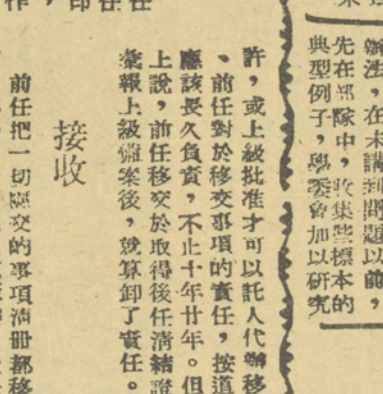 辦法，在未講到問題以前，
先在部隊中，收集些標本的
典型例子，學委會加以研究
許，或上級批准才可以託人代辦移
、前任對於移交事項的責任，按道
應該長久負責，不止十年廿年。但
上說，前任移交於取得後任清結證
彙報上級備案後，就算卸了責任。
接收
前任把一切應交的事項清冊都移